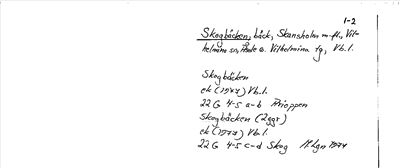 1-2
Skogbäcken, bäck, Skansholm m.fl., Vil-
helmina sn, Åsele o. Vilhelmina tg, Vb. l.
Skogbäcken
ek (1977) Vb. l.
22 G 4-5 a-b
Skogbäcken (2 ggr)
ek (1977) Vb. l.
22 G 4-5 c-d Skog Lgn 1974